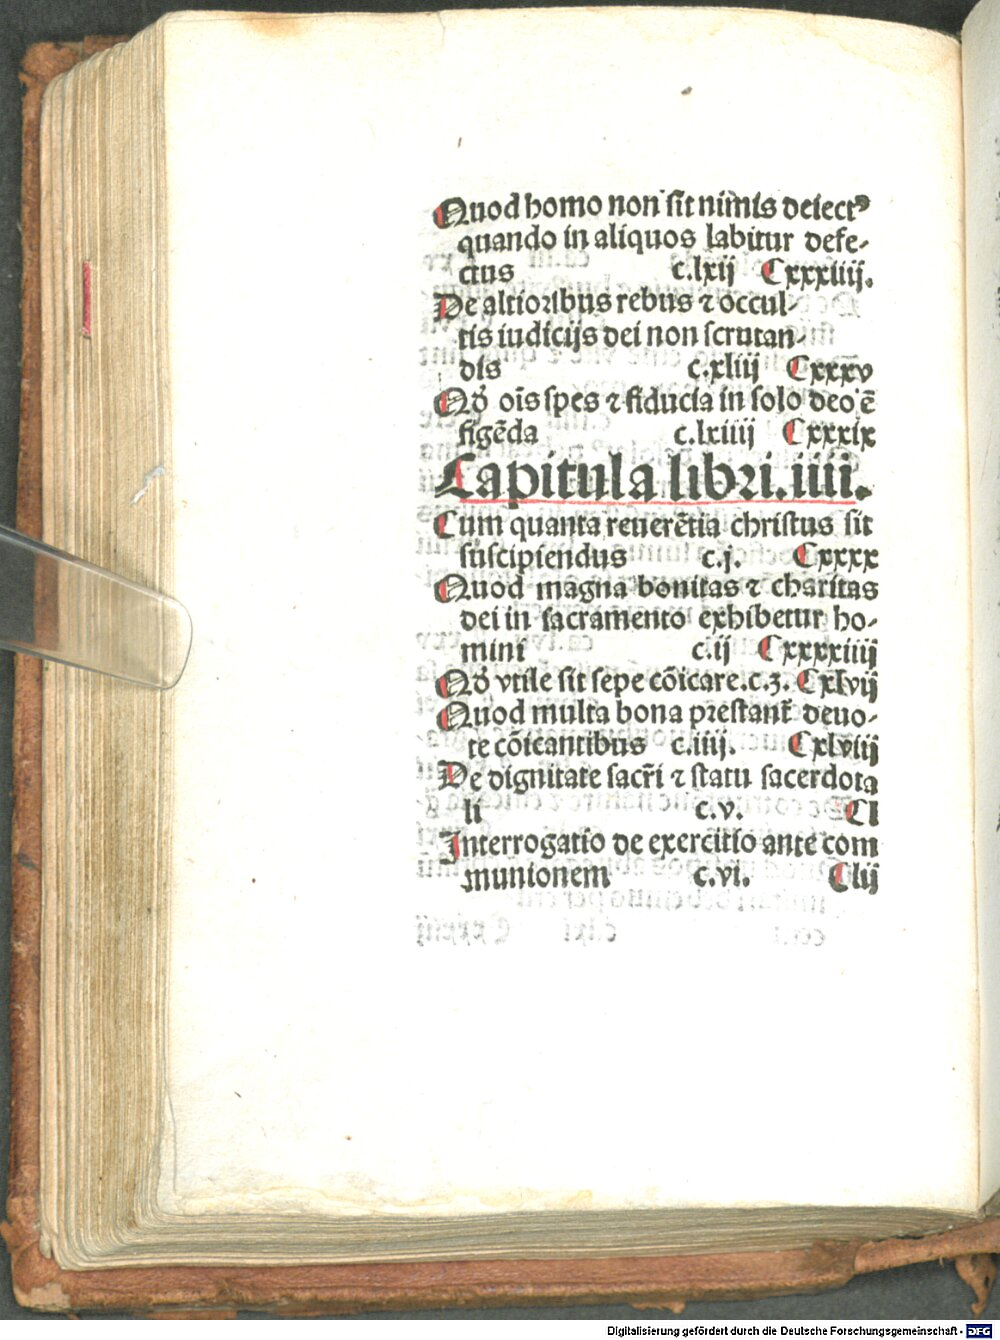 Quod homo non sit nimis deiectꝰ
quando in aliquos labitur defe-
ctus c.lxij Cxxxiiij.
De altioribus rebus ⁊ occul-
tis iudicijs dei non scrutan-
dis c.xliij Cxxxv
Qđ oīs spes ⁊ fiducia in solo deo ē
figēda c.lxiiij Cxxxix
Capitula libri.iiij.
Cum quanta reuerētia christus sit
suscipiendus c.j. Cxxxx
Quod magna bonitas ⁊ charitas
dei in sacramento exhibetur ho-
mini c.ij Cxxxxiiij
Qđ vtile sit sepe cōicare.c.3. Cxlvij
Quod multa bona prestant̄ deuo-
te cōicantibus c.iiij. Cxlviij
De dignitate sacr̄i ⁊ statu sacerdota
li c.v. Cl
Interrogatio de exercitio ante com
munionem c.vi. Clij
Digitalisierung gefördert durch die Deutsche Forschungsgemeinschaft - DFG